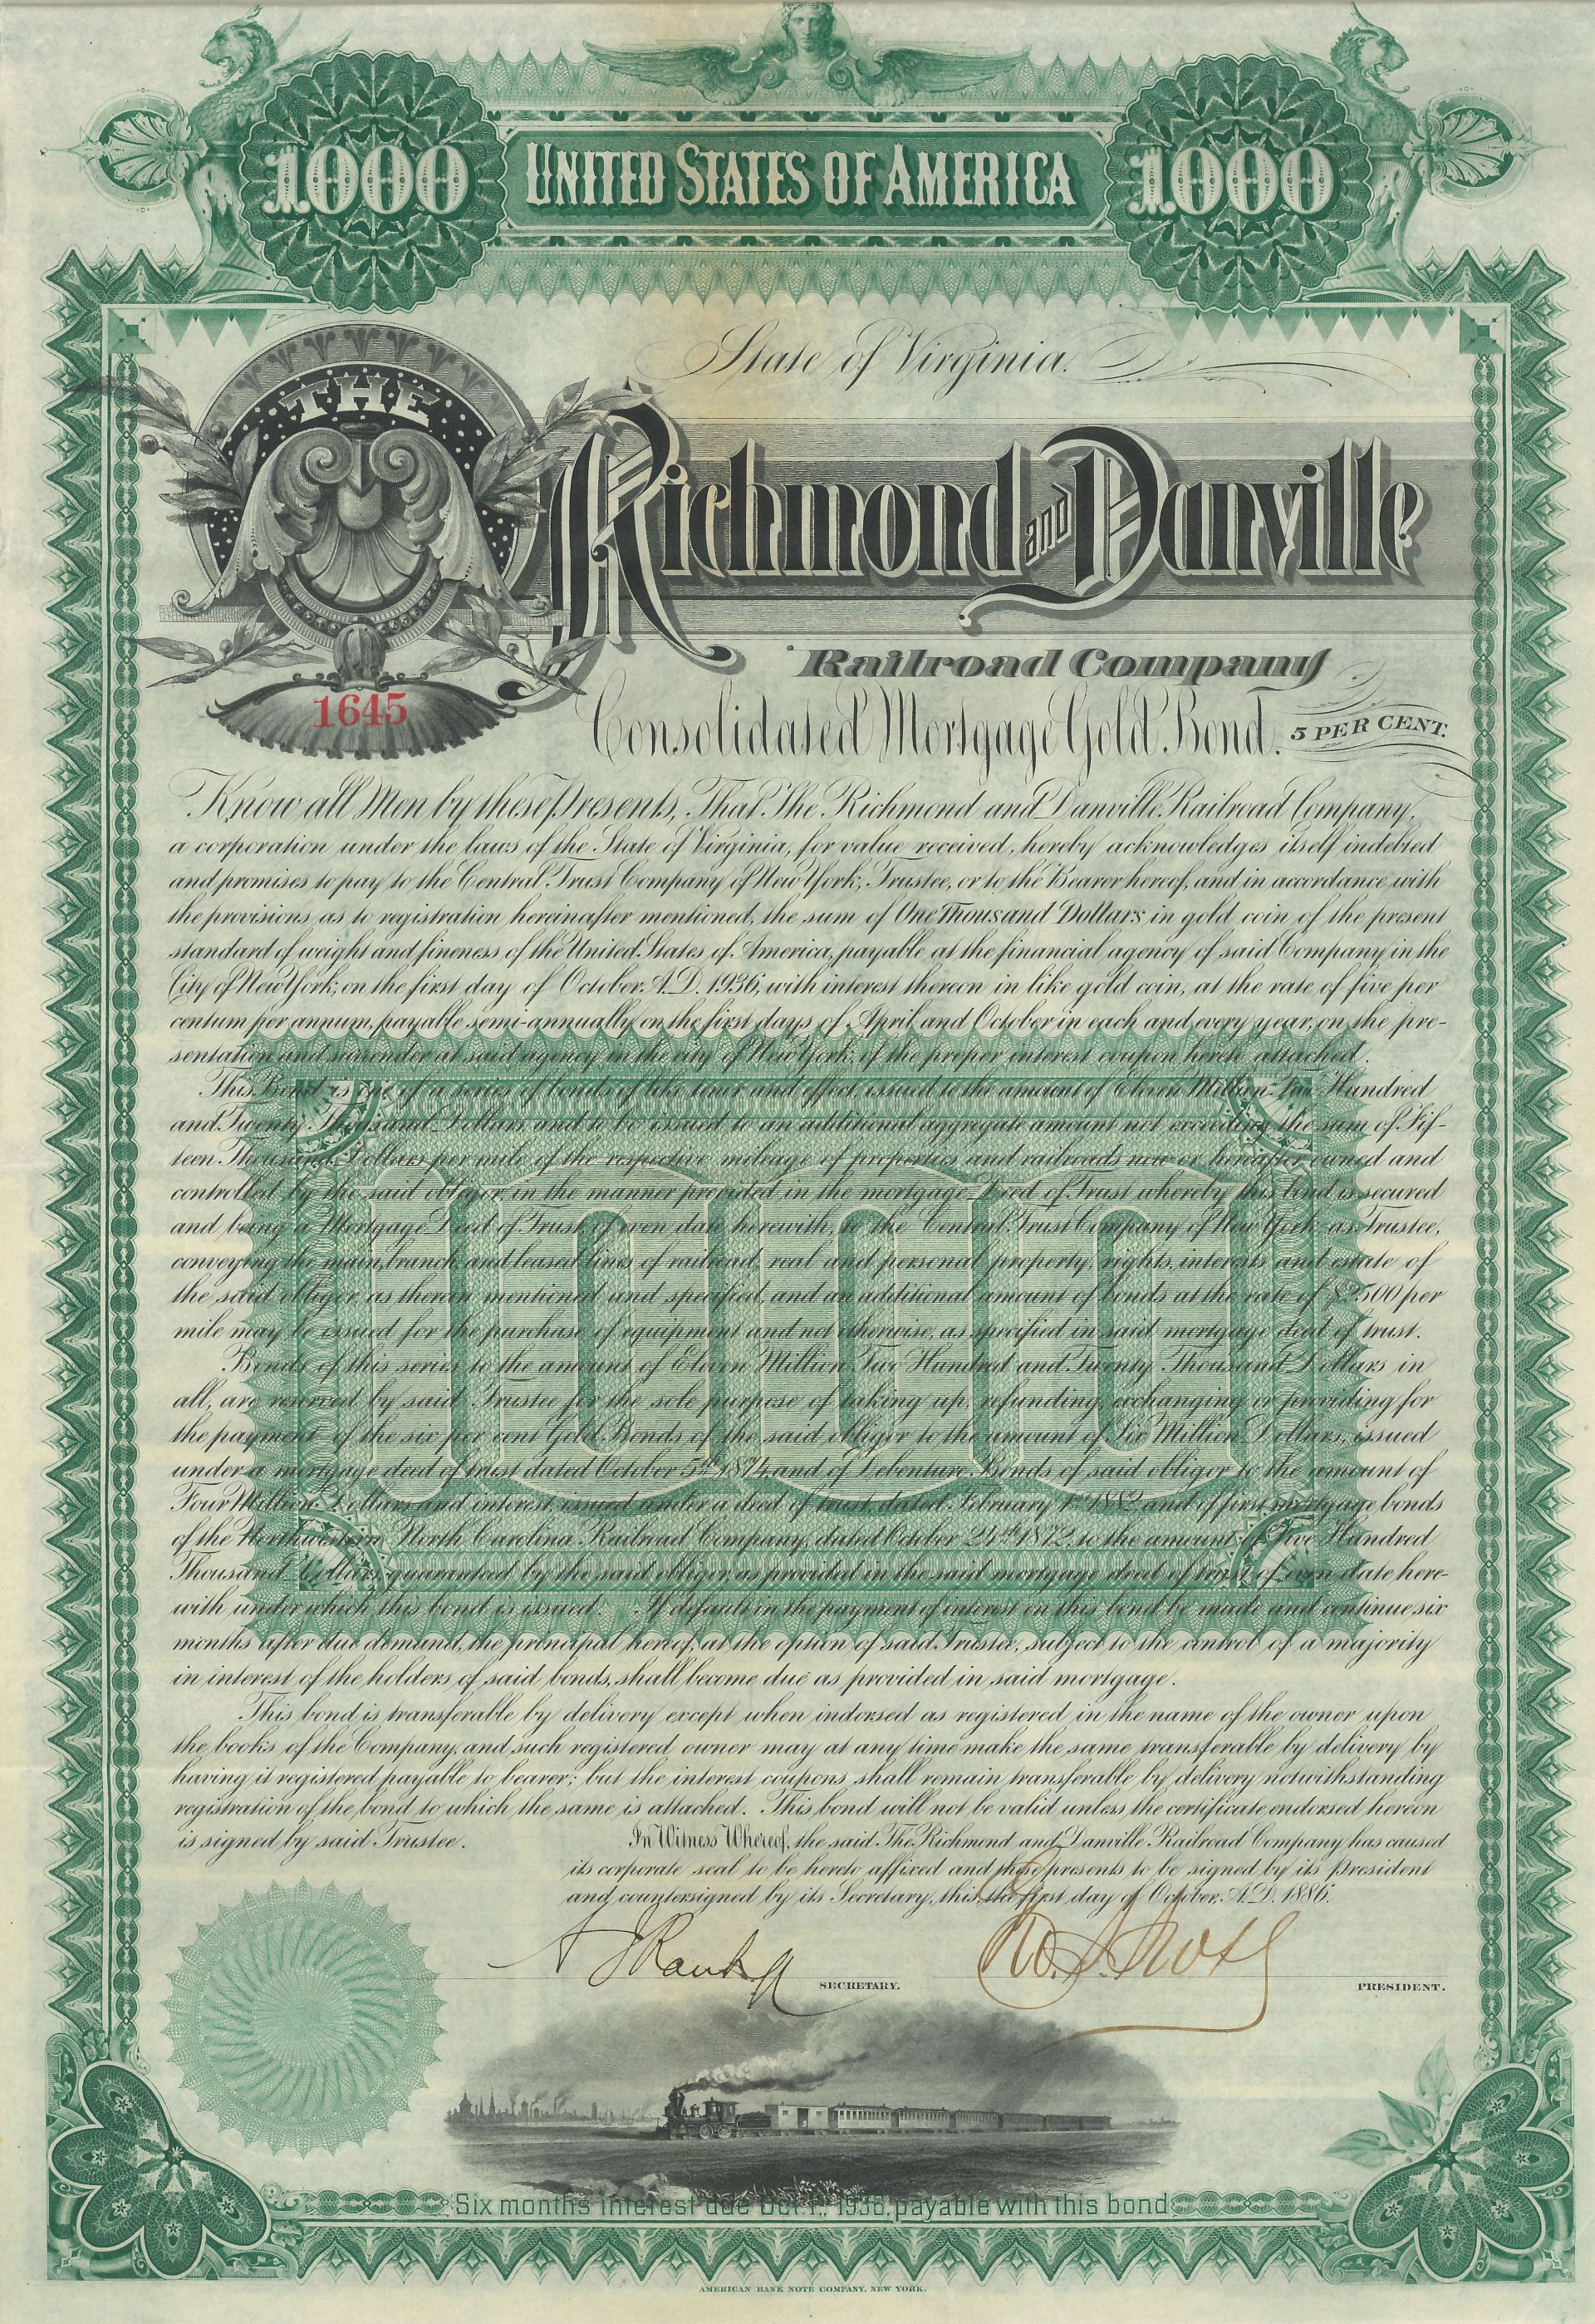 1000 UNITED STATES OF AMERICA 1000
State of Virginia.
THE
Richmond and Danville
Railroad Company
1645
Consolidated Mortgage Gold Bond. 5 PER CENT.
Know all Men by these Presents, That The Richmond and Danville Railroad Company,
a corporation under the laws of the State of Virginia, for value received, hereby acknowledges itself indebted
and promises to pay to the Central Trust Company of New York, Trustee, or to the Bearer hereof, and in accordance with
the provisions as to registration hereinafter mentioned, the sum of One Thousand Dollars in gold coin of the present
standard of weight and fineness of the United States of America, payable at the financial agency of said Company in the
City of New York, on the first day of October A.D. 1936, with interest thereon in like gold coin, at the rate of five per
centum per annum, payable semi-annually on the first days of April and October in each and every year, on the pre-
sentation and surrender at said agency in the city of New York, of the proper interest coupon hereto attached.
This Bond is one of a series of bonds of like tenor and effect, issued to the amount of Eleven Million Two Hundred
and Twenty Thousand Dollars, and to be issued to an additional aggregate amount not exceeding the sum of Fif-
teen Thousand Dollars per mile of the respective mileage of properties and railroads now or hereafter owned and
controlled by the said obligor, in the manner provided in the mortgage Deed of Trust whereby this bond is secured
and being a Mortgage Deed of Trust of even date herewith, to the Central Trust Company of New York, as Trustee,
conveying the main, branch and leased lines of railroad, real and personal property, rights, interests and estate of
the said obligor, as therein mentioned and specified, and an additional amount of bonds at the rate of $2500 per
mile may be issued for the purchase of equipment and not otherwise, as specified in said mortgage deed of trust.
Bonds of this series to the amount of Eleven Million Two Hundred and Twenty Thousand Dollars in
all, are reserved by said Trustee for the sole purpose of taking up, refunding, exchanging or providing for
the payment of the six per cent Gold Bonds of the said obligor to the amount of Six Million Dollars, issued
under a mortgage deed of trust dated October 5th 1874, and of Debenture Bonds of said obligor to the amount of
Four Million Dollars and interest, issued under a deed of trust, dated February 1st 1882, and of first mortgage bonds
of the Northwestern North Carolina Railroad Company, dated October 24th 1872, to the amount of Five Hundred
Thousand Dollars, guaranteed by the said obligor, as provided in the said mortgage deed of trust of even date here-
with under which this bond is issued. If default in the payment of interest on this bond be made and continue six
months after due demand, the principal hereof, at the option of said Trustee, subject to the control of a majority
in interest of the holders of said bonds, shall become due as provided in said mortgage.
This bond is transferable by delivery except when indorsed as registered in the name of the owner upon
the books of the Company, and such registered owner may at any time make the same transferable by delivery by
having it registered payable to bearer; but the interest coupons shall remain transferable by delivery notwithstanding
registration of the bond to which the same is attached. This bond will not be valid unless the certificate endorsed hereon
is signed by said Trustee.
In Witness Whereof, the said The Richmond and Danville Railroad Company has caused
its corporate seal to be hereto affixed and these presents to be signed by its President
and countersigned by its Secretary, this, the first day of October, A.D. 1886.
SECRETARY. PRESIDENT.
Six months interest due Oct. 1., 1936, payable with this bond
AMERICAN BANK NOTE COMPANY, NEW YORK.